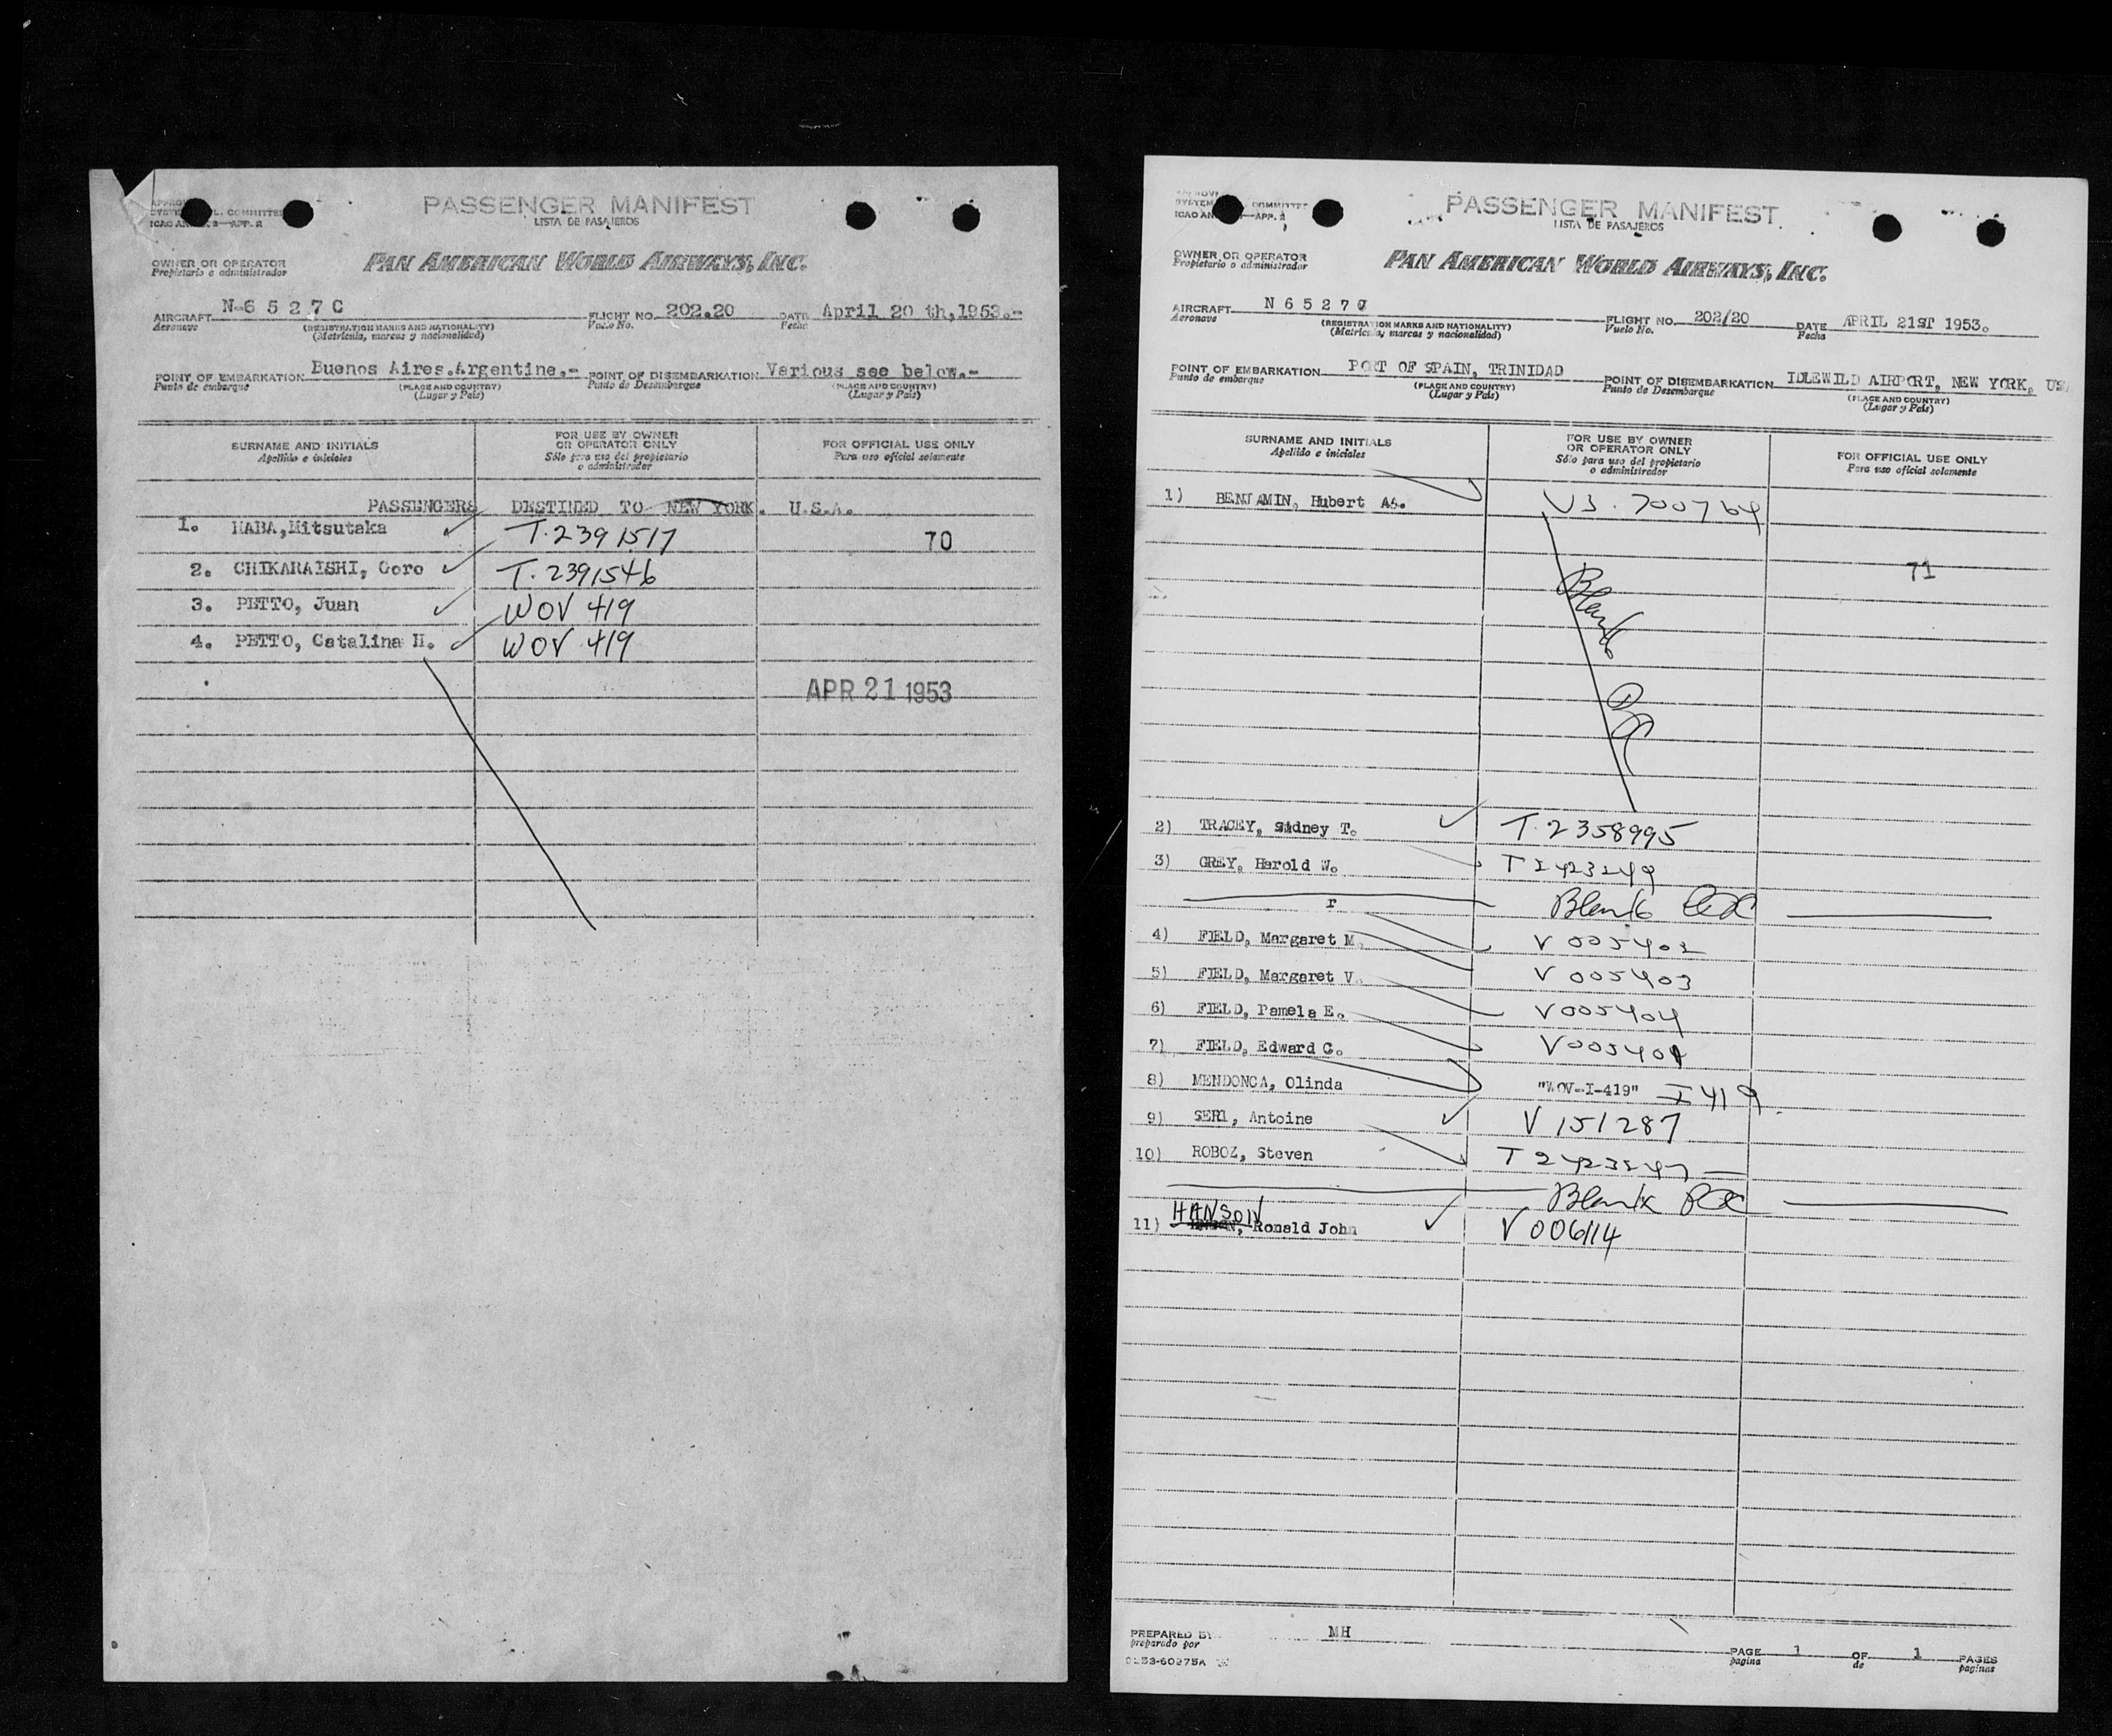 PASSENGER MANIFEST
LISTA DE PASAJEROS
COMMITTEE
APP. 2
OWNER OR OPERATOR
Propietario o administrador
PAN AMERICAN WORLD AIRWAYS, INC.
AIRCRAFT N-6 5 2 7 C FLIGHT NO. 202.20 DATE April 20 th,1953.-
Aeronave (REGISTRATION MARKS AND NATIONALITY) Vuelo No. Fecha
(Matricula, marcas y nacionalidad)
POINT OF EMBARKATION Buenos Aires.Argentine,- POINT OF DISEMBARKATION Various see below.-
Punto de embarque (PLACE AND COUNTRY) Punto de Desembarque (PLACE AND COUNTRY)
(Lugar y País) (Lugar y País)
SURNAME AND INITIALS FOR USE BY OWNER OR OPERATOR ONLY FOR OFFICIAL USE ONLY
Apellido e iniciales Sólo para uso del propietario o administrador Para uso oficial solamente
PASSENGERS DESTINED TO NEW YORK. U.S.A.
1. HABA,Mitsutaka T.2391517 70
2. CHIKARAISHI, Goro T.2391546
3. PETTO, Juan WOV 419
4. PETTO, Catalina H. WOV 419
APR 21 1953
PASSENGER MANIFEST
LISTA DE PASAJEROS
SYSTEM COMMITTEE
ICAO AN APP. 2
OWNER OR OPERATOR
Propietario o administrador
PAN AMERICAN WORLD AIRWAYS, INC.
AIRCRAFT N 6 5 2 7 C FLIGHT NO. 202/20 DATE APRIL 21ST 1953.
Aeronave (REGISTRATION MARKS AND NATIONALITY) Vuelo No. Fecha
(Matricula, marcas y nacionalidad)
POINT OF EMBARKATION PORT OF SPAIN, TRINIDAD POINT OF DISEMBARKATION IDLEWILD AIRPORT, NEW YORK, US
Punto de embarque (PLACE AND COUNTRY) Punto de Desembarque (PLACE AND COUNTRY)
(Lugar y País) (Lugar y País)
SURNAME AND INITIALS FOR USE BY OWNER OR OPERATOR ONLY FOR OFFICIAL USE ONLY
Apellido e iniciales Sólo para uso del propietario o administrador Para uso oficial solamente
1) BENJAMIN, Hubert A. 700764
71
Blank
2) TRACEY, Sidney T. T.2358995
3) GREY, Harold W. T2423249
r Blank
4) FIELD, Margaret M. V 005402
5) FIELD, Margaret V. V 005403
6) FIELD, Pamela E. V005404
7) FIELD, Edward C. V005401
8) MENDONCA, Olinda "WOV-I-419" I 419
9) SERI, Antoine V 151287
10) ROBOZ, Steven T 2423247
Blank
11) HANSON, Ronald John V 006114
PREPARED BY MH PAGE 1 OF 1 PAGES
preparado por pagina de paginas